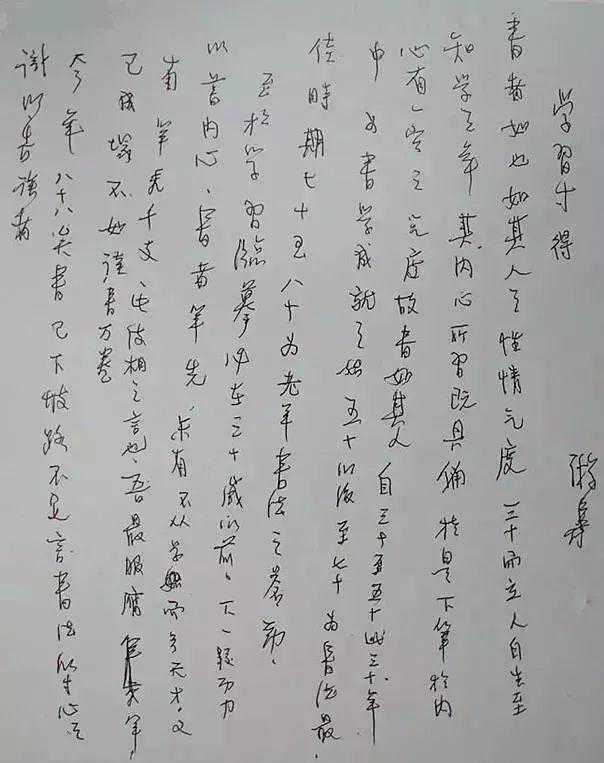 学习寸得
书者如也如其人之性情气度 三十而立人自生至
知学之年 其内心所习既具 于是下笔于内
心有一定之气度故书如其人 自三十至五十此三十年
中 为书学成就之始 五十以后至七十 为书法最
佳时期七十至八十为老年书法之苍劲、
至于学习临摹必在三十岁以前、下一段功力
以蓄内心、书者笔先 未有不从学而夸天才、又
有 笔秃千支、 皮相之言也、吾最服膺 笔
已成塚不如读书万卷
今年 八十八矣书已下坡路不足言书法以生心之